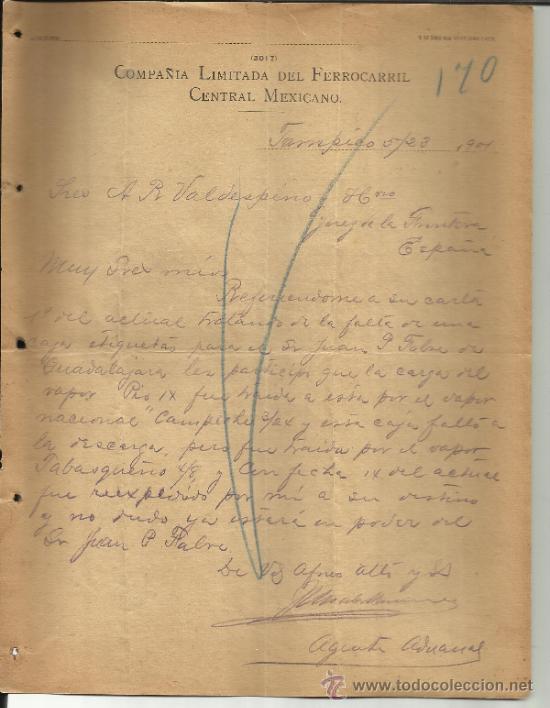 (3017)
COMPAÑIA LIMITADA DEL FERROCARRIL
CENTRAL MEXICANO.
170
Tampico 5/23 1901
Sres A R Valdespino y Hno
Jerez de la Frontera
España
Muy Sres mios
Refiriendome a su carta
1º del actual tratando de la falta de una
caja etiquetas para el Sr Juan P
Guadalajara les participo que la carga del
vapor Pio IX fue traida a esta por el vapor
nacional "Campeche" y esta caja faltó a
la descarga, pero fue traida por el vapor
Tabasqueño 4/8, y con fecha del actual
fue reexpedido por mi a su destino
y no dudo ya estará en poder del
Sr Juan P
De Vds Afmo Atto y SS
Agente Aduanal
www.todocoleccion.net